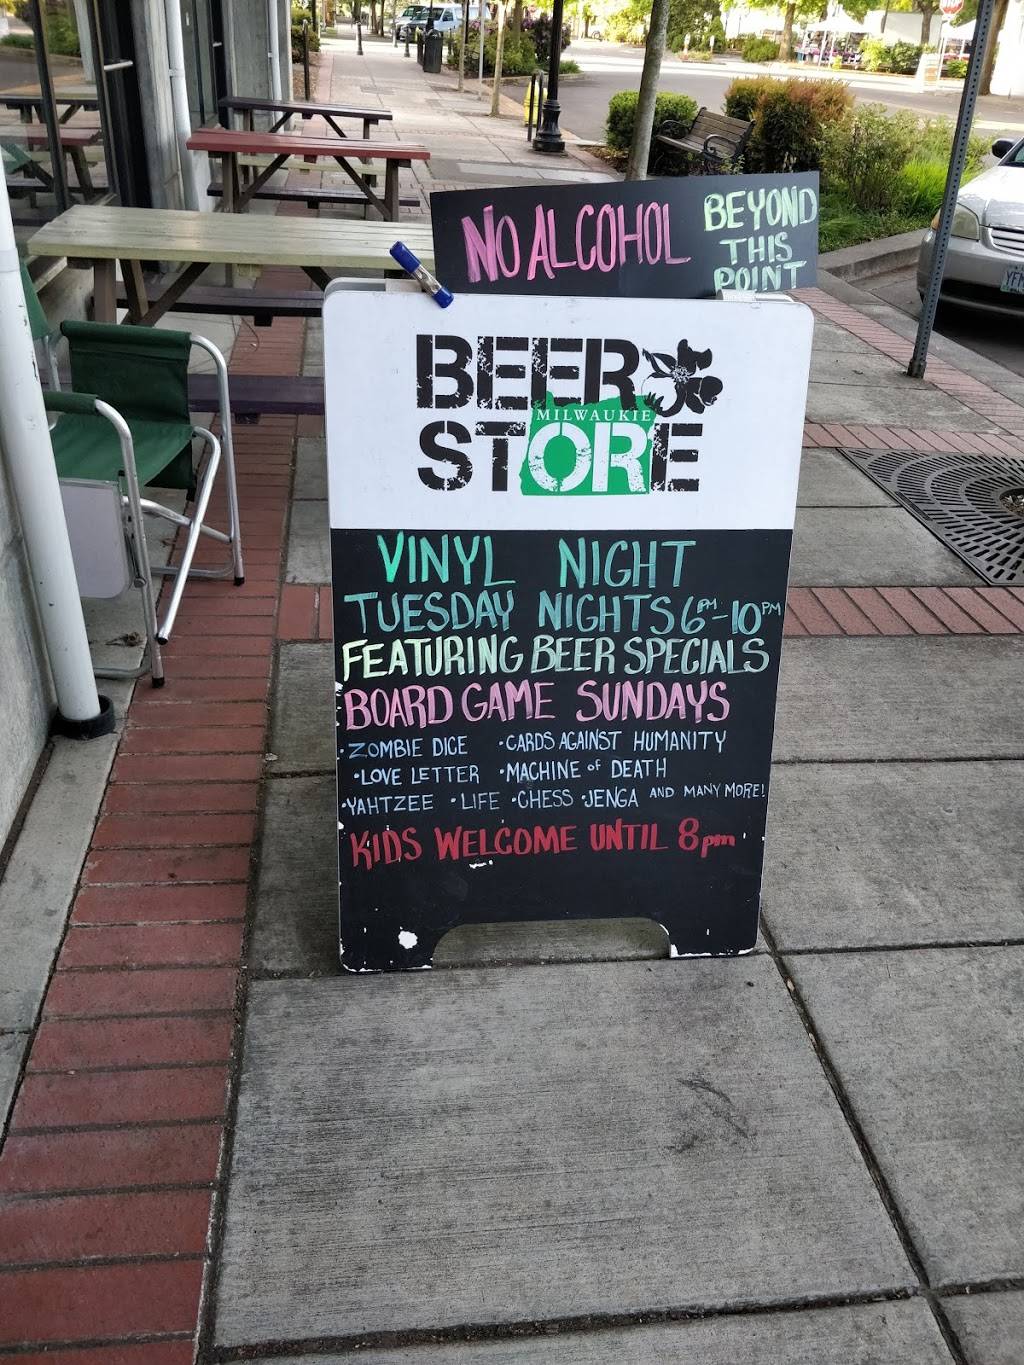 NO ALCOHOL BEYOND
THIS
POINT
BEER
MILWAUKIE
STORE
VINYL NIGHT
TUESDAY NIGHTS 6PM-10PM
FEATURING BEER SPECIALS
BOARD GAME SUNDAYS
·ZOMBIE DICE ·CARDS AGAINST HUMANITY
·LOVE LETTER ·MACHINE OF DEATH
·YAHTZEE ·LIFE ·CHESS ·JENGA AND MANY MORE!
KIDS WELCOME UNTIL 8pm